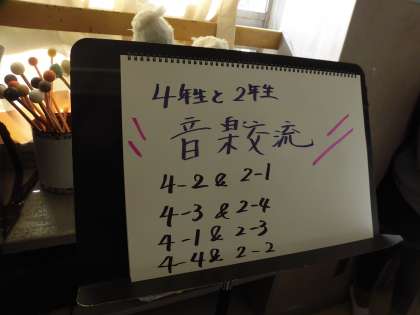 4年生と2年生
音楽交流
4-2 & 2-1
4-3 & 2-4
4-1 & 2-3
4-4 & 2-2